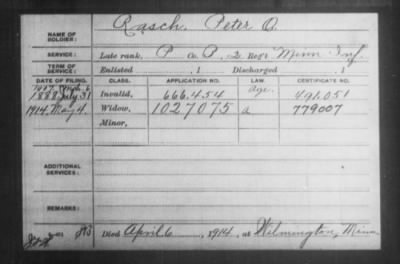 NAME OF SOLDIER: Rasch, Peter O.
SERVICE: Late rank, P Co. P, 2 Reg't Minn Inf.
TERM OF SERVICE: Enlisted , 1 Discharged , 1
DATE OF FILING. CLASS. APPLICATION NO. LAW. CERTIFICATE NO.
1907
1888 July 31 Invalid, 666.454 age. 491.051
1914. May 4. Widow, 1027075 a 779007
Minor,
ADDITIONAL SERVICES:
REMARKS:
Died April 6, 1914, at Wilmington, Minn